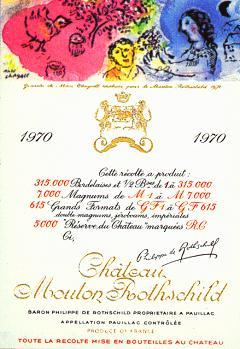 Marc
Chagall
1970
1970
Cette récolte a produit :
315.000 Bordelaises et ½ Bses de 1 à 315.000
7.000 Magnums de M 1 à M 7.000
615 Grands Formats de GF 1 à GF 615
double magnums, jéroboams, impériales
5.000 "Réserve du Château" marquées R.C.
Ci,
Philippe de Rothschild
Château
Mouton Rothschild
BARON PHILIPPE DE ROTHSCHILD PROPRIETAIRE A PAUILLAC
APPELLATION PAUILLAC CONTRÔLÉE
PRODUCE OF FRANCE
TOUTE LA RECOLTE MISE EN BOUTEILLES AU CHATEAU